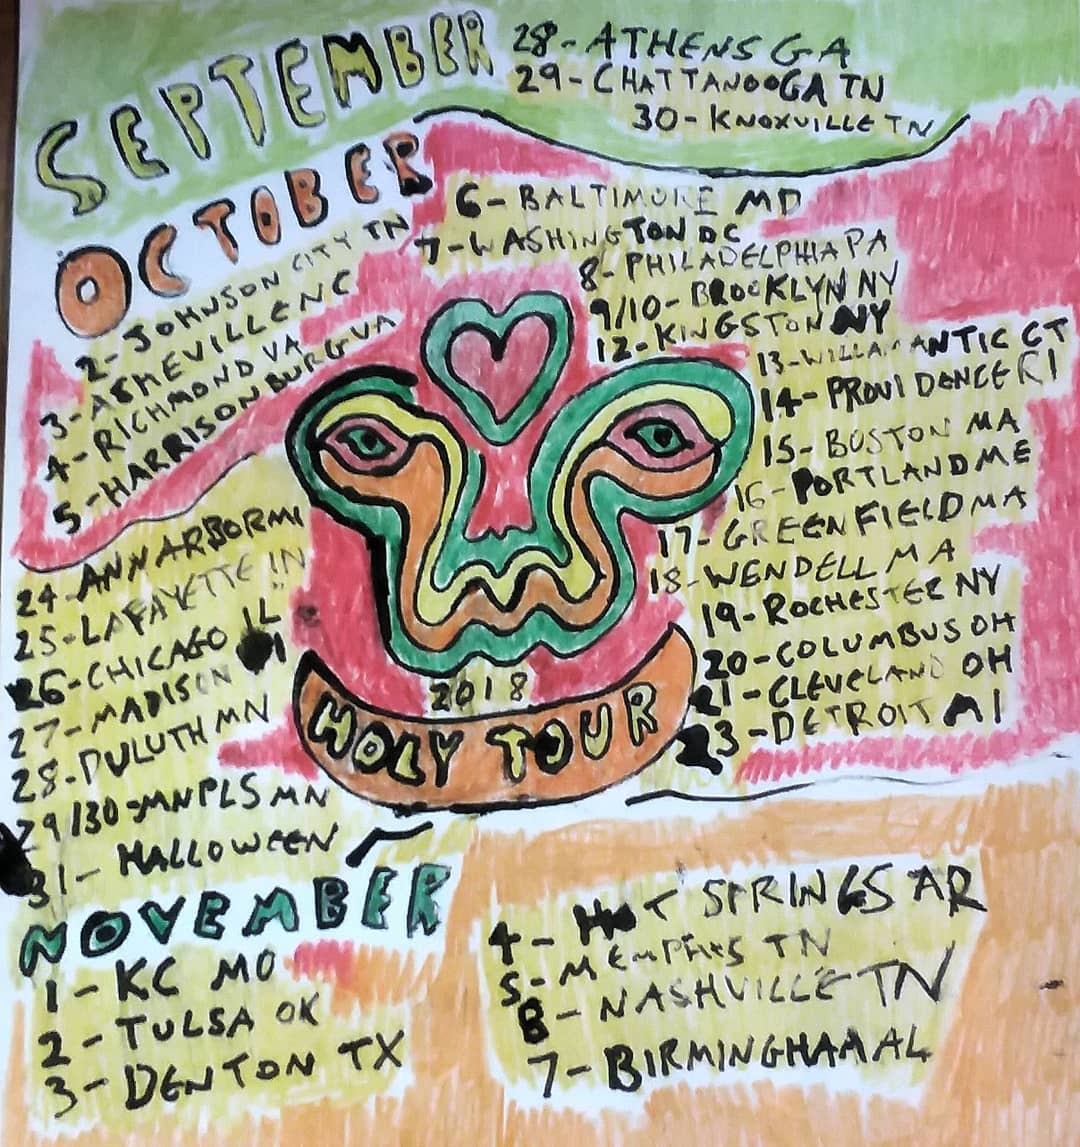 SEPTEMBER
28-ATHENS GA
29-CHATTANOOGA TN
30-KNOXVILLE TN
OCTOBER
2-JOHNSON CITY TN
3-ASHEVILLE NC
4-RICHMOND VA
5-HARRISONBURG VA
6-BALTIMORE MD
7-WASHINGTON DC
8-PHILADELPHIA PA
9/10-BROOKLYN NY
12-KINGSTON NY
13-WILLAMANTIC CT
14-PROVIDANCE RI
15-BOSTON MA
16-PORTLAND ME
17-GREENFIELD MA
18-WENDELL MA
19-ROCHESTER NY
20-COLUMBUS OH
21-CLEVELAND OH
23-DETROIT MI
24-ANN ARBOR MI
25-LAFAYETTE IN
26-CHICAGO IL
27-MADISON
28-DULUTH MN
29/30-MNPLS MN
31-HALLOWEEN
2018
HOLY TOUR
NOVEMBER
1-KC MO
2-TULSA OK
3-DENTON TX
4-HOT SPRINGS AR
5-MEMPHIS TN
8-NASHVILLE TN
7-BIRMINGHAM AL